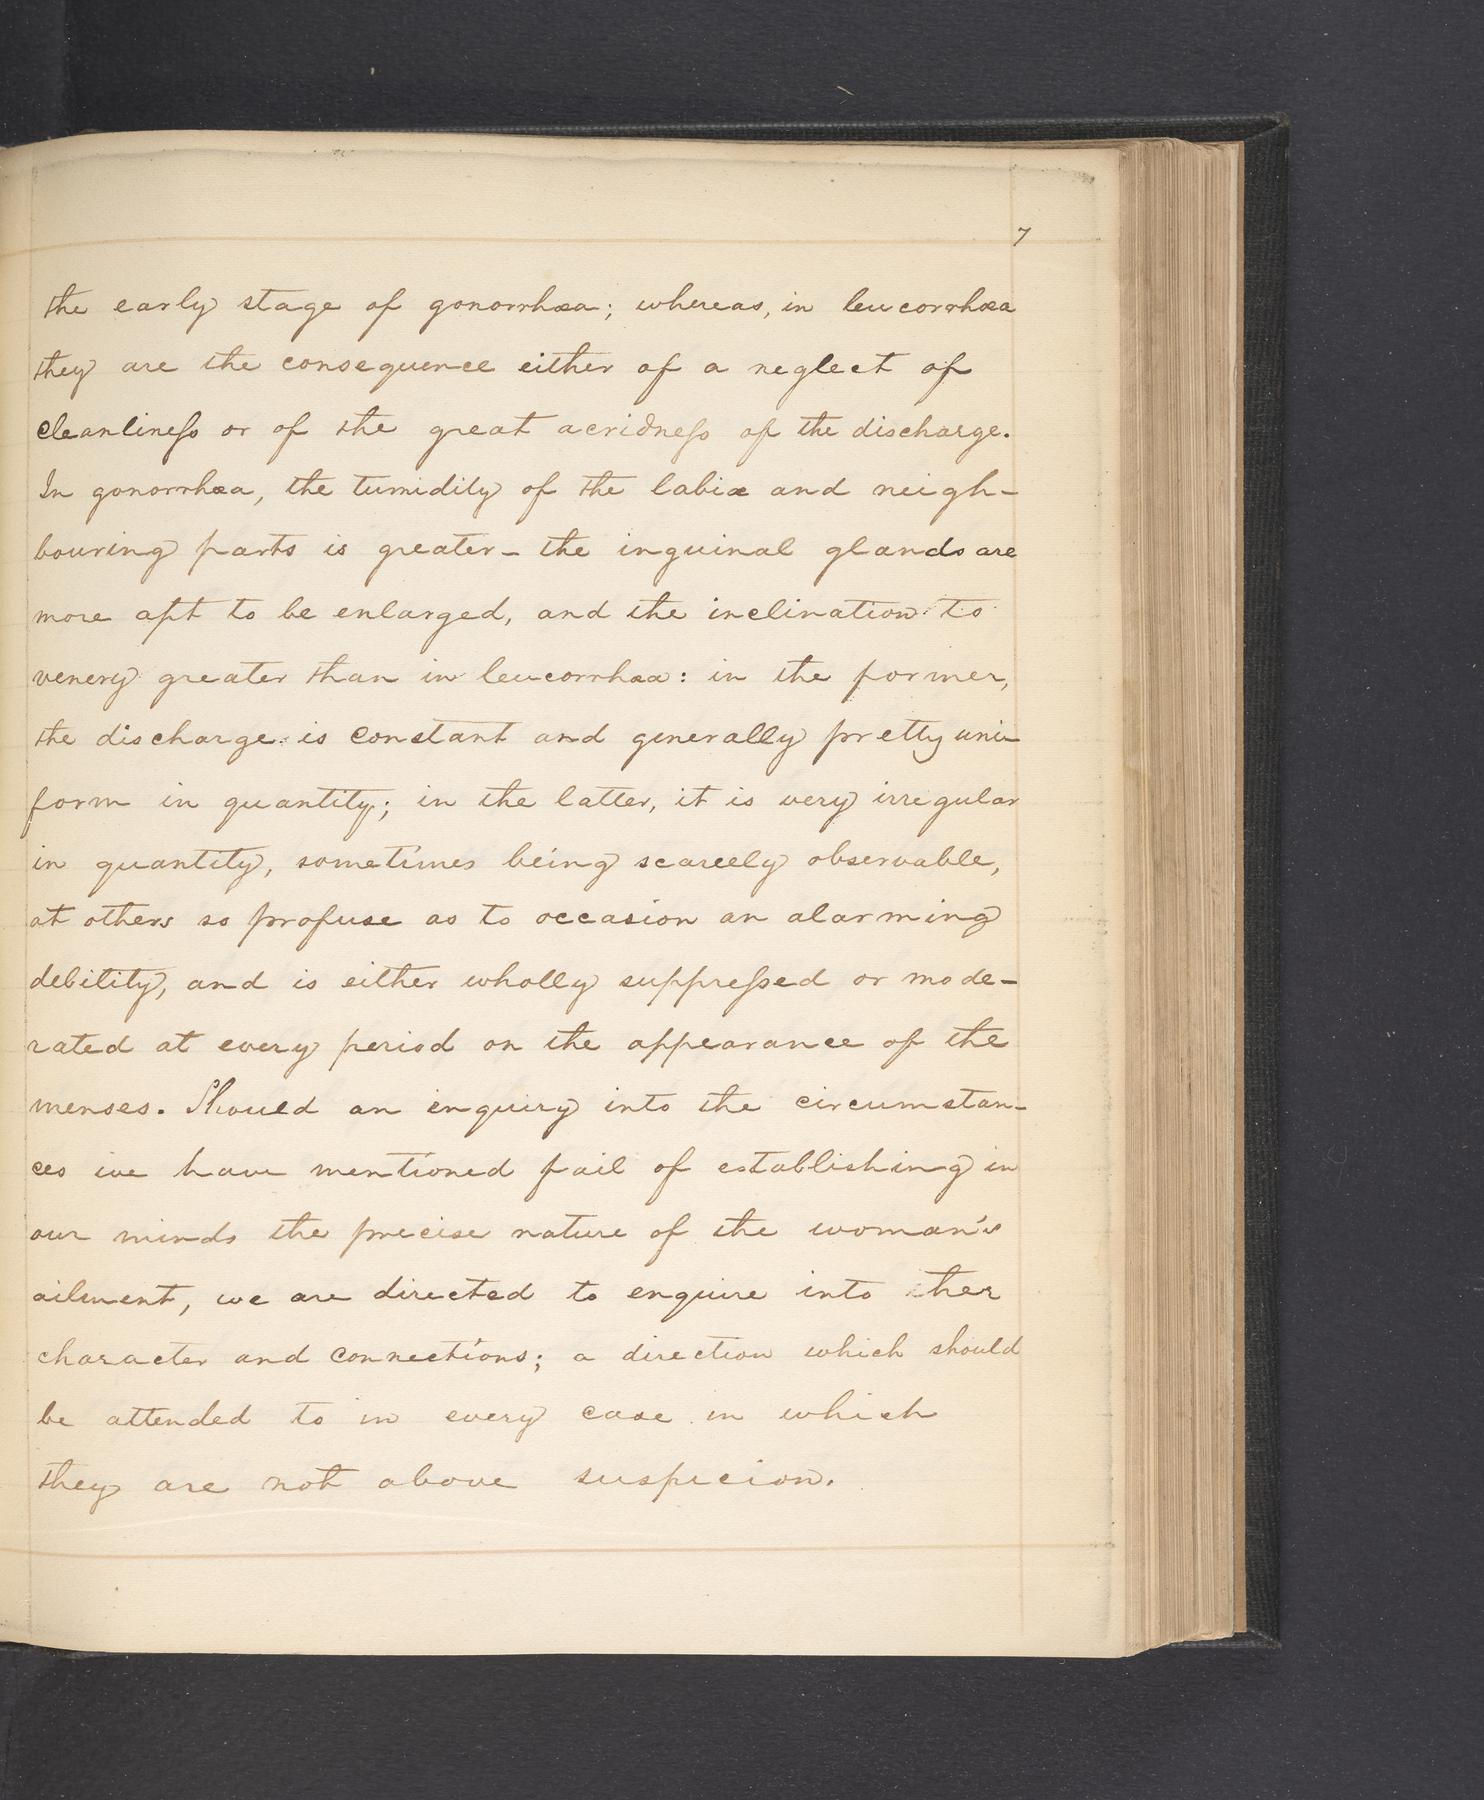 7
the early stage of gonorrhœa; whereas, in leucorrhœa
they are the consequence either of a neglect of
cleanlineſs or of the great acridneſs of the discharge.
In gonorrhœa, the tumidity of the labiæ and neigh-
bouring parts is greater - the inguinal glands are
more apt to be enlarged, and the inclination to
venery greater than in leucorrhœa: in the former,
the discharge is constant and generally pretty uni-
form in quantity; in the latter, it is very irregular
in quantity, sometimes being scarcely observable,
at others so profuse as to occasion an alarming
debility, and is either wholly suppreſsed or mode-
rated at every period on the appearance of the
menses. Should an enquiry into the circumstan-
ces we have mentioned fail of establishing in
our minds the precise nature of the woman's
ailment, we are directed to enquire into her
character and connections; a direction which should
be attended to in every case in which
they are not above suspicion.